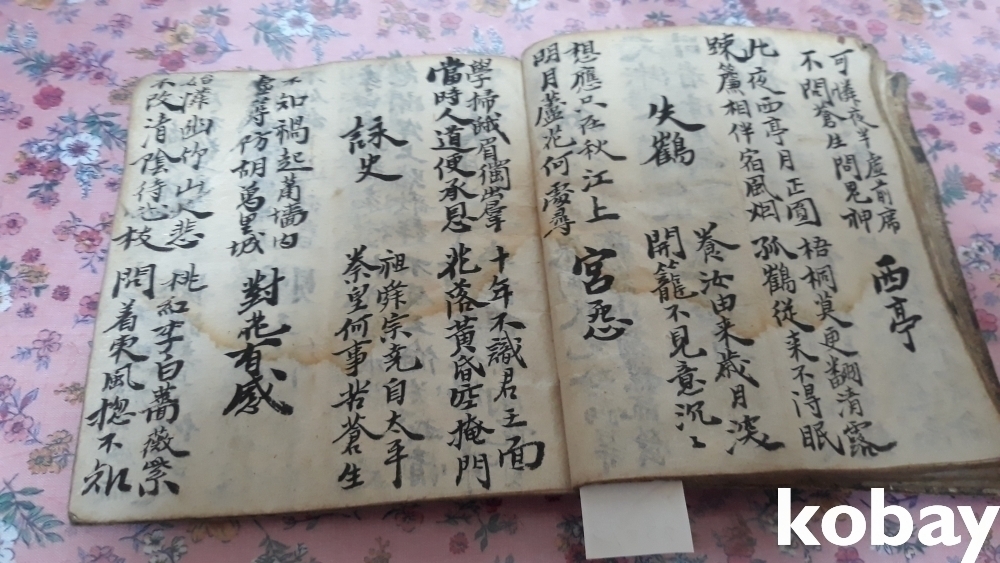 可憐夜半虛前席
不問蒼生問鬼神
西亭
此夜西亭月正圓
疎簾相伴宿風烟
梧桐莫更翻清露
孤鶴從来不得眠
失鶴
養汝由来歲月深
開籠不見意沉〻
想應只在秋江上
明月蘆花何處尋
宮怨
學掃蛾眉獨出羣
當時人道便承恩
十年不識君王面
花落黃昏空掩門
詠史
祖舜宗堯自太平
秦皇何事苦蒼生
不知禍起蕭墻內
虛築防胡萬里城
對花有感
桃紅李白薔薇紫
問着東風揔不知
憐幽竹山
不改清陰待
kobay